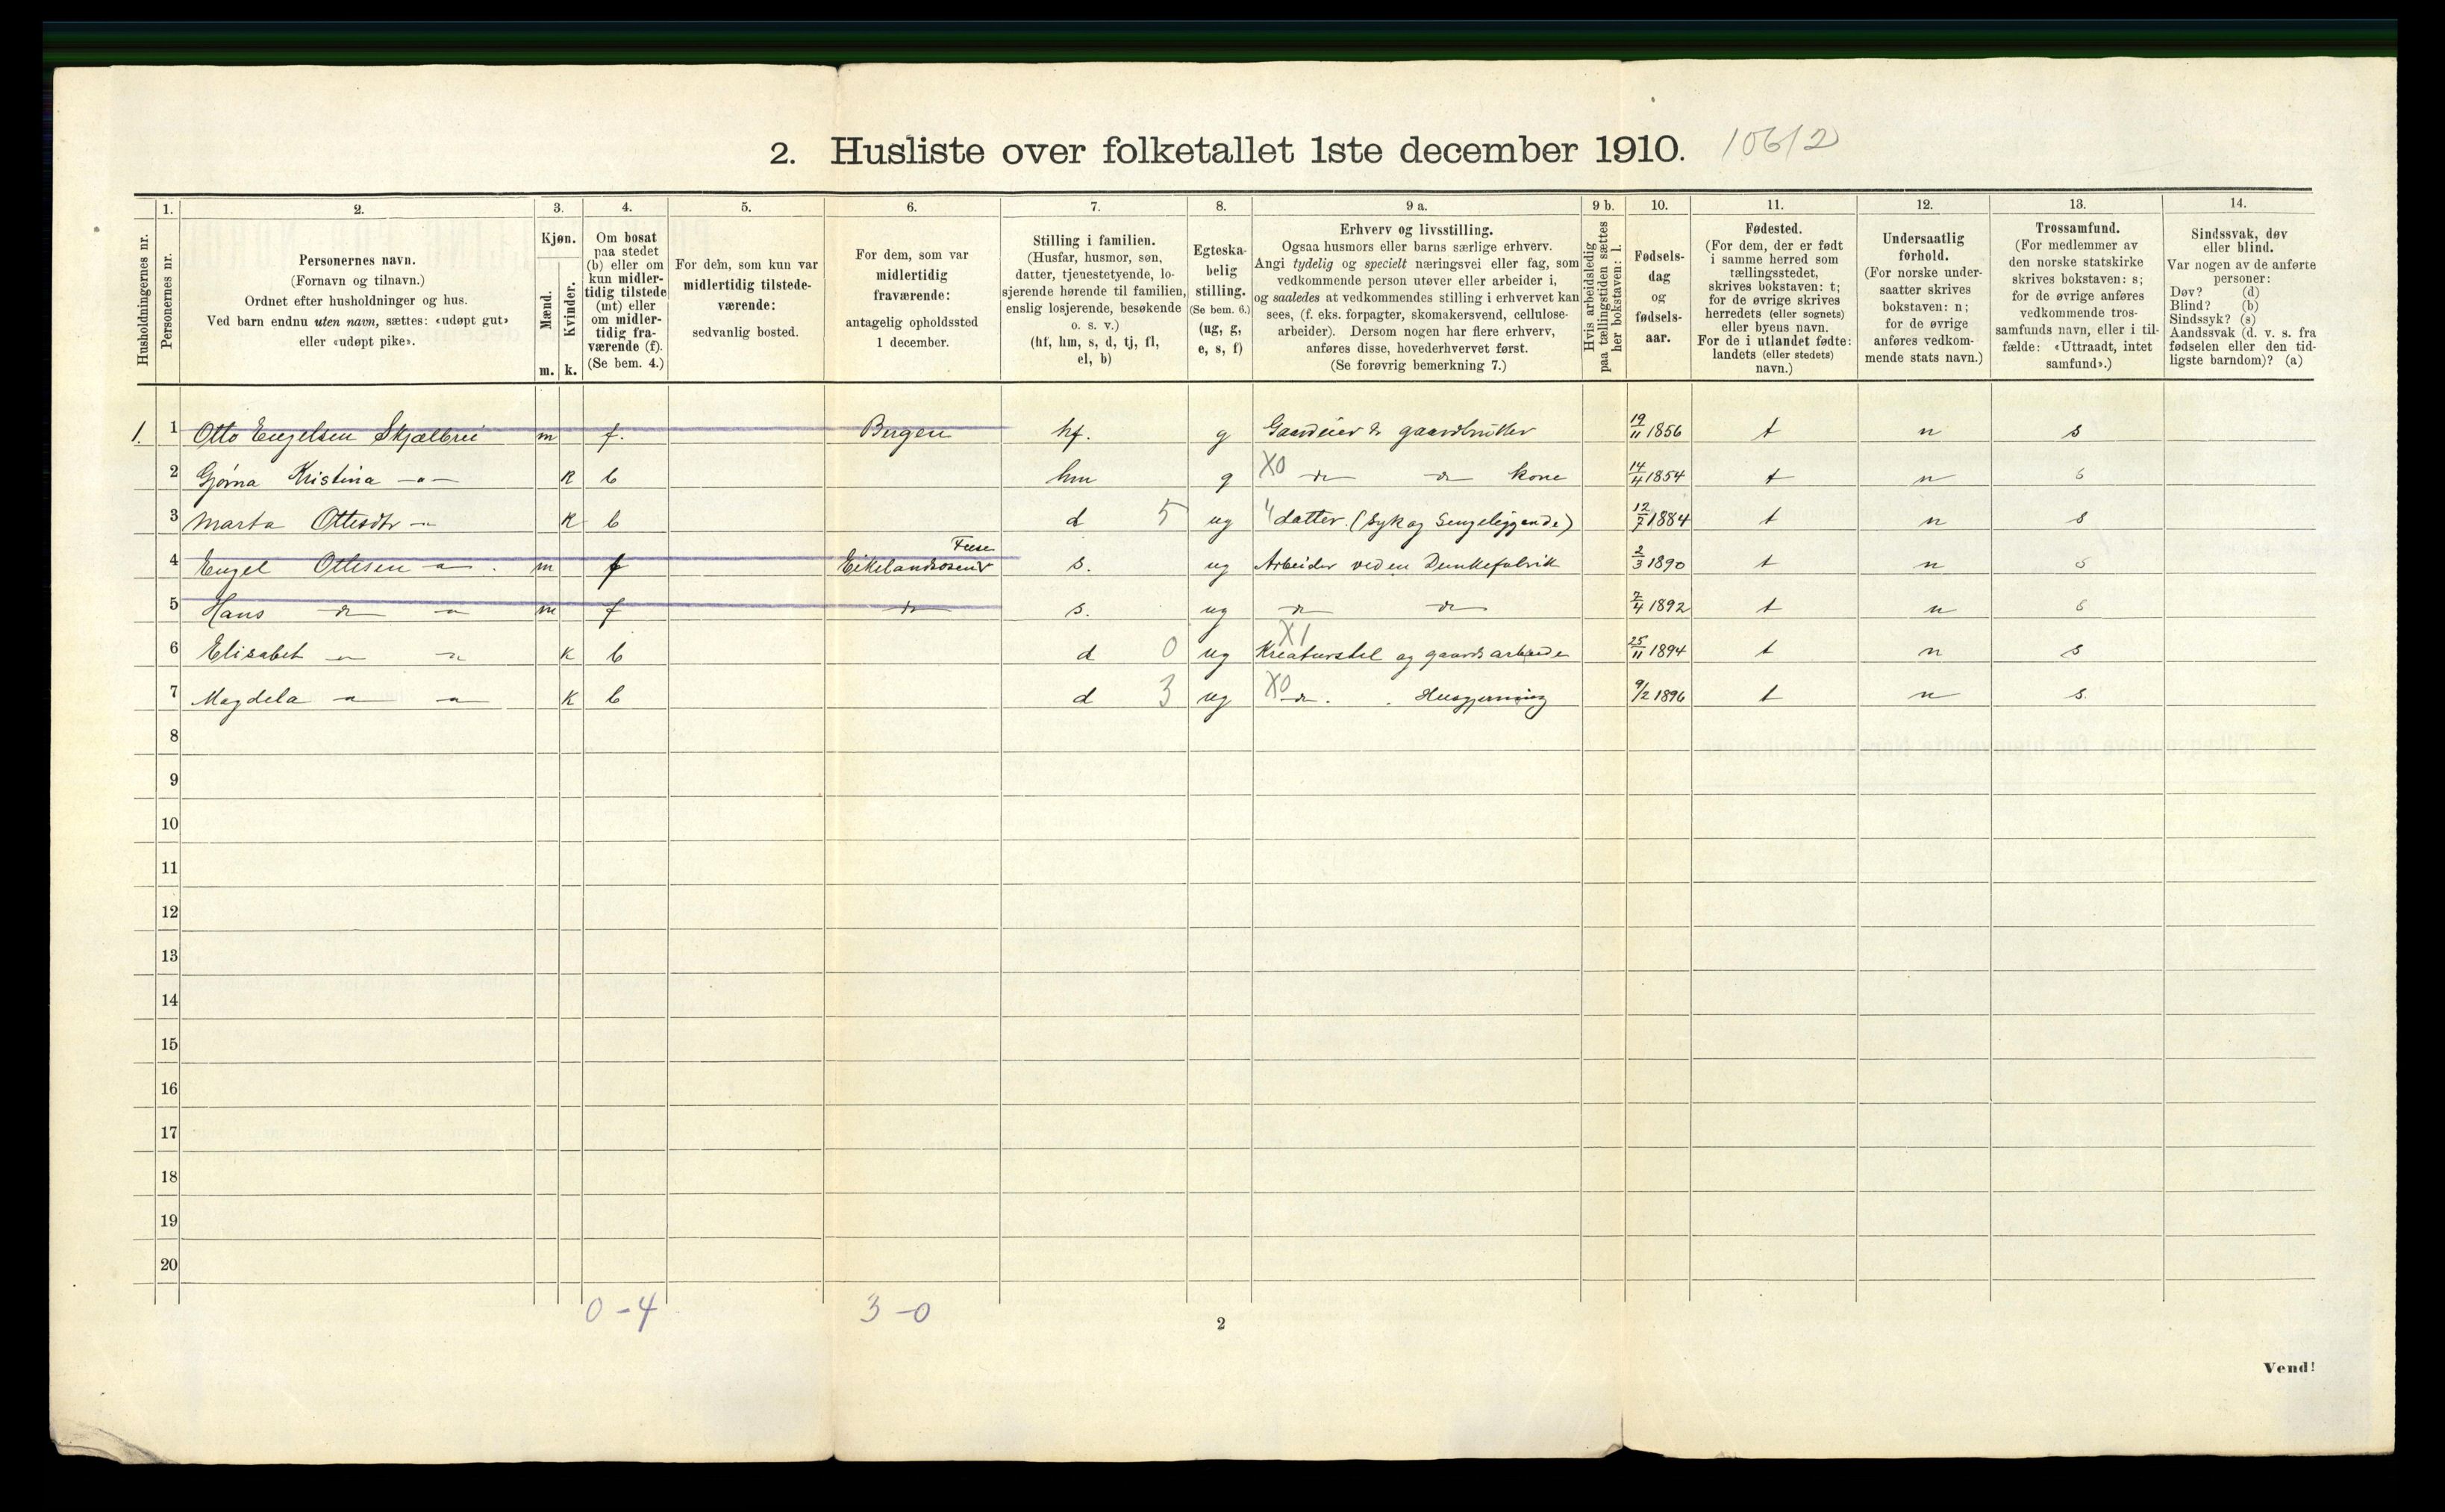 2. Husliste over folketallet 1ste december 1910. 10612
Husholdningernes nr.
1.
Personernes nr.
2.
Personernes navn.
(Fornavn og tilnavn.)
Ordnet efter husholdninger og hus.
Ved barn endnu uten navn, sættes: «udøpt gut»
eller «udøpt pike».
3.
Kjøn.
Mænd.
Kvinder.
m. k.
4.
Om bosat
paa stedet
(b) eller om
kun midler-
tidig tilstede
(mt) eller
om midler-
tidig fra-
værende (f).
(Se bem. 4.)
5.
For dem, som kun var
midlertidig tilstede-
værende:
sedvanlig bosted.
6.
For dem, som var
midlertidig
fraværende:
antagelig opholdssted
1 december.
7.
Stilling i familien.
(Husfar, husmor, søn,
datter, tjenestetyende, lo-
sjerende hørende til familien,
enslig losjerende, besøkende
o. s. v.)
(hf, hm, s, d, tj, fl,
el, b)
8.
Egteska-
belig
stilling.
(Se bem. 6.)
(ug, g,
e, s, f)
9 a.
Erhverv og livsstilling.
Ogsaa husmors eller barns særlige erhverv.
Angi tydelig og specielt næringsvei eller fag, som
vedkommende person utøver eller arbeider i,
og saaledes at vedkommendes stilling i erhvervet kan
sees, (f. eks. forpagter, skomakersvend, cellulose-
arbeider). Dersom nogen har flere erhverv,
anføres disse, hovederhvervet først.
(Se forøvrig bemerkning 7.)
9 b.
Hvis arbeidsledig
paa tællingstiden sættes
her bokstaven: l.
10.
Fødsels-
dag
og
fødsels-
aar.
11.
Fødested.
(For dem, der er født
i samme herred som
tællingsstedet,
skrives bokstaven: t;
for de øvrige skrives
herredets (eller sognets)
eller byens navn.
For de i utlandet fødte:
landets (eller stedets)
navn.)
12.
Undersaatlig
forhold.
(For norske under-
saatter skrives
bokstaven: n;
for de øvrige
anføres vedkom-
mende stats navn.)
13.
Trossamfund.
(For medlemmer av
den norske statskirke
skrives bokstaven: s;
for de øvrige anføres
vedkommende tros-
samfunds navn, eller i til-
fælde: «Uttraadt, intet
samfund».)
14.
Sindssvak, døv
eller blind.
Var nogen av de anførte
personer:
Døv? (d)
Blind? (b)
Sindssyk? (s)
Aandssvak (d. v. s. fra
fødselen eller den tid-
ligste barndom)? (a)
1. 1 Otto Engelsen Skjælbrei m f. Bergen hf. g Gaardeier & gaardbruker 19/11 1856 t n s
2 Gjørna Kristina -"- k b hm g X0 do do kone 14/4 1854 t n s
3 Marta Ottesdtr -"- k b d 5 ug datter. (Syk og Sengeliggende) 12/7 1884 t n s
4 Engel Ottesen -"- m f Eikelandsosen Fuse s. ug Arbeider ved en Dunkefabrik 2/3 1890 t n s
5 Hans do -"- m f do s. ug do do 7/4 1892 t n s
6 Elisabet -"- -"- k b d 0 ug X1 Kreaturstel og gaardsarbeide 25/11 1894 t n s
7 Magdela -"- -"- k b d 3 ug X0 do. Husgjerning 9/2 1896 t n s.
8
9
10
11
12
13
14
15
16
17
18
19
20
0-4 3-0
2
Vend!